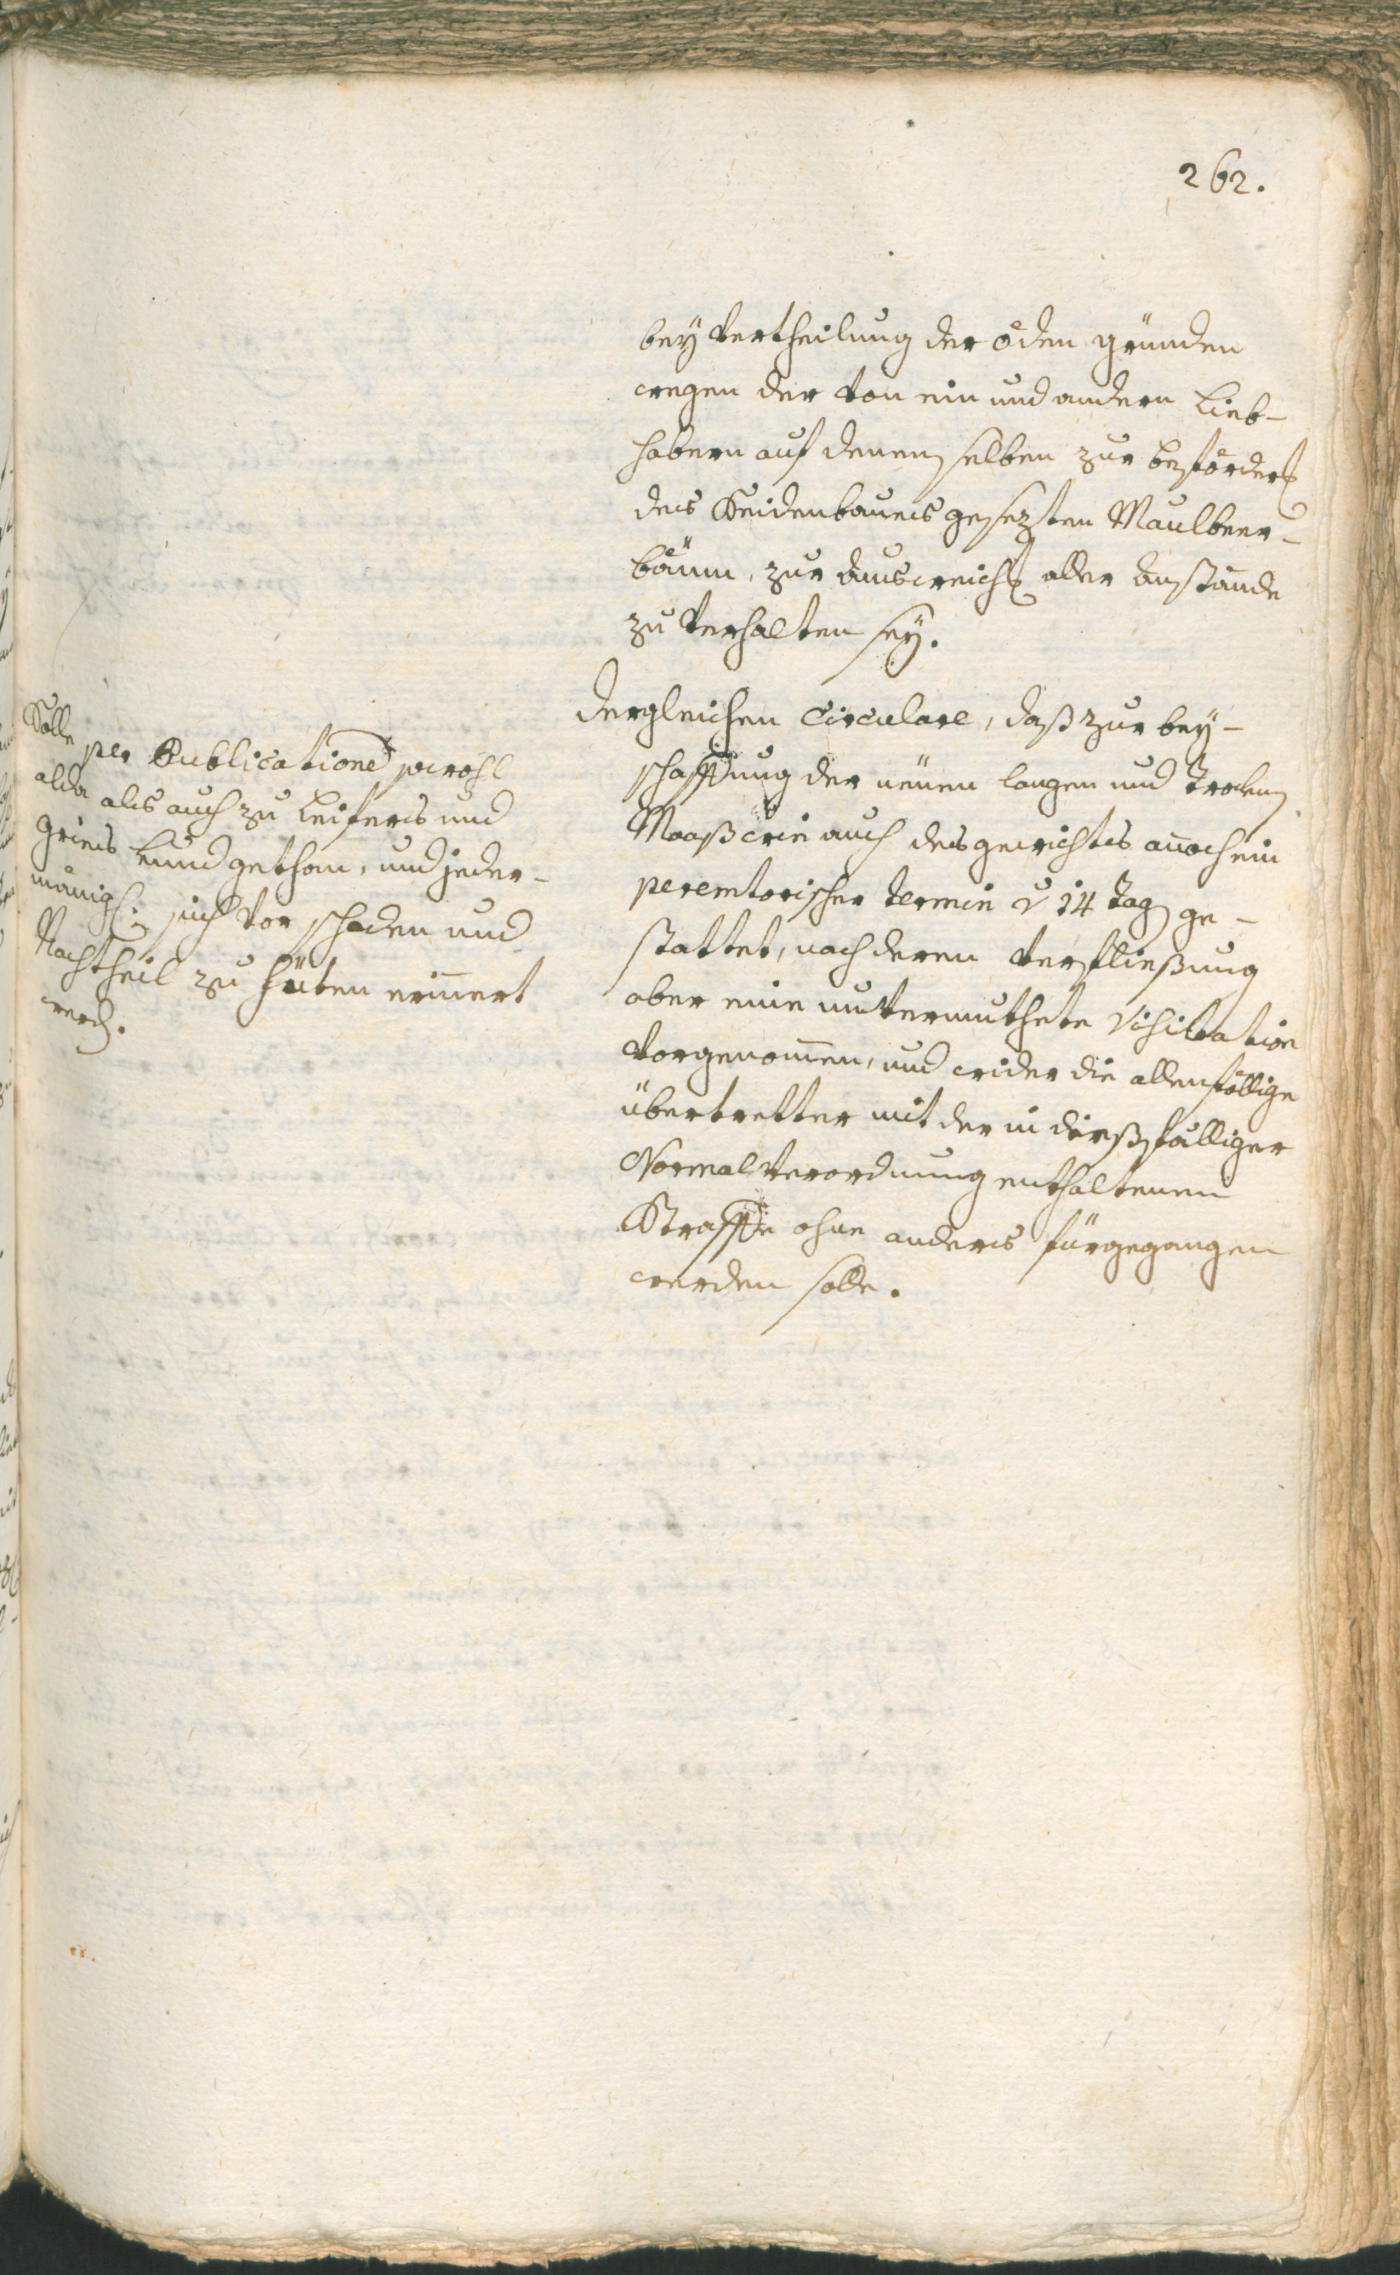 262.
bey Vertheilung der öden gründen
wegen der von ein und andern Lieb-
habern auf denenselben zur beförder
des Seidenbaues gesezten Maulbeer-
bäum, zur ausweich aller anstände
zu verhalten sey.
Dergleichen Circulare, daß zur bey-
schaffung der neuen langen und Troken
Maaß wie auch des gewichtes annoch ein
peremtorischer termin v 14 tag ge-
stattet, nach deren verfließung
aber eine unvermuthete Visitation
vorgenommen, und wider die allenfällige
übertretter mit der in dießfälliger
Normal verordnung enthaltenen
Straffe ohne anders fürgegangen
werden solle.
Solle per Publicatione sowohl
alda als auch zu Leifers und
Gries kund gethan, und jeder-
mänigl: sich vor schaden und
Nachtheil zu hüten erinnert
werd.